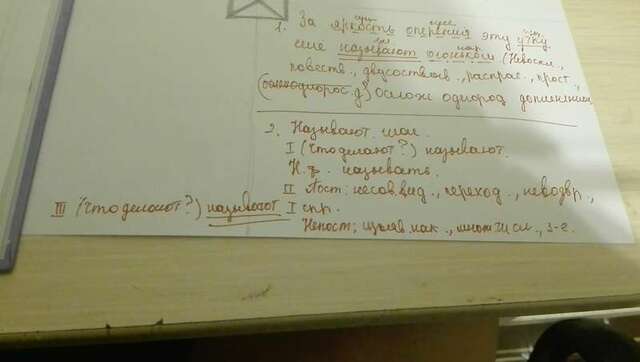 1. За яркость оперения эту утку
еще называют огоньком (Невоскл.,
повеств., двусостав., распрас., прост.,
осложн однород дополнением
2. Называют глаг.
I (что делают?) называют.
Н.ф. называть.
II Пост: несов.вид., переход., невозвр.,
I спр.
Непост: изъяв.нак., множ
III (что делают?) называют